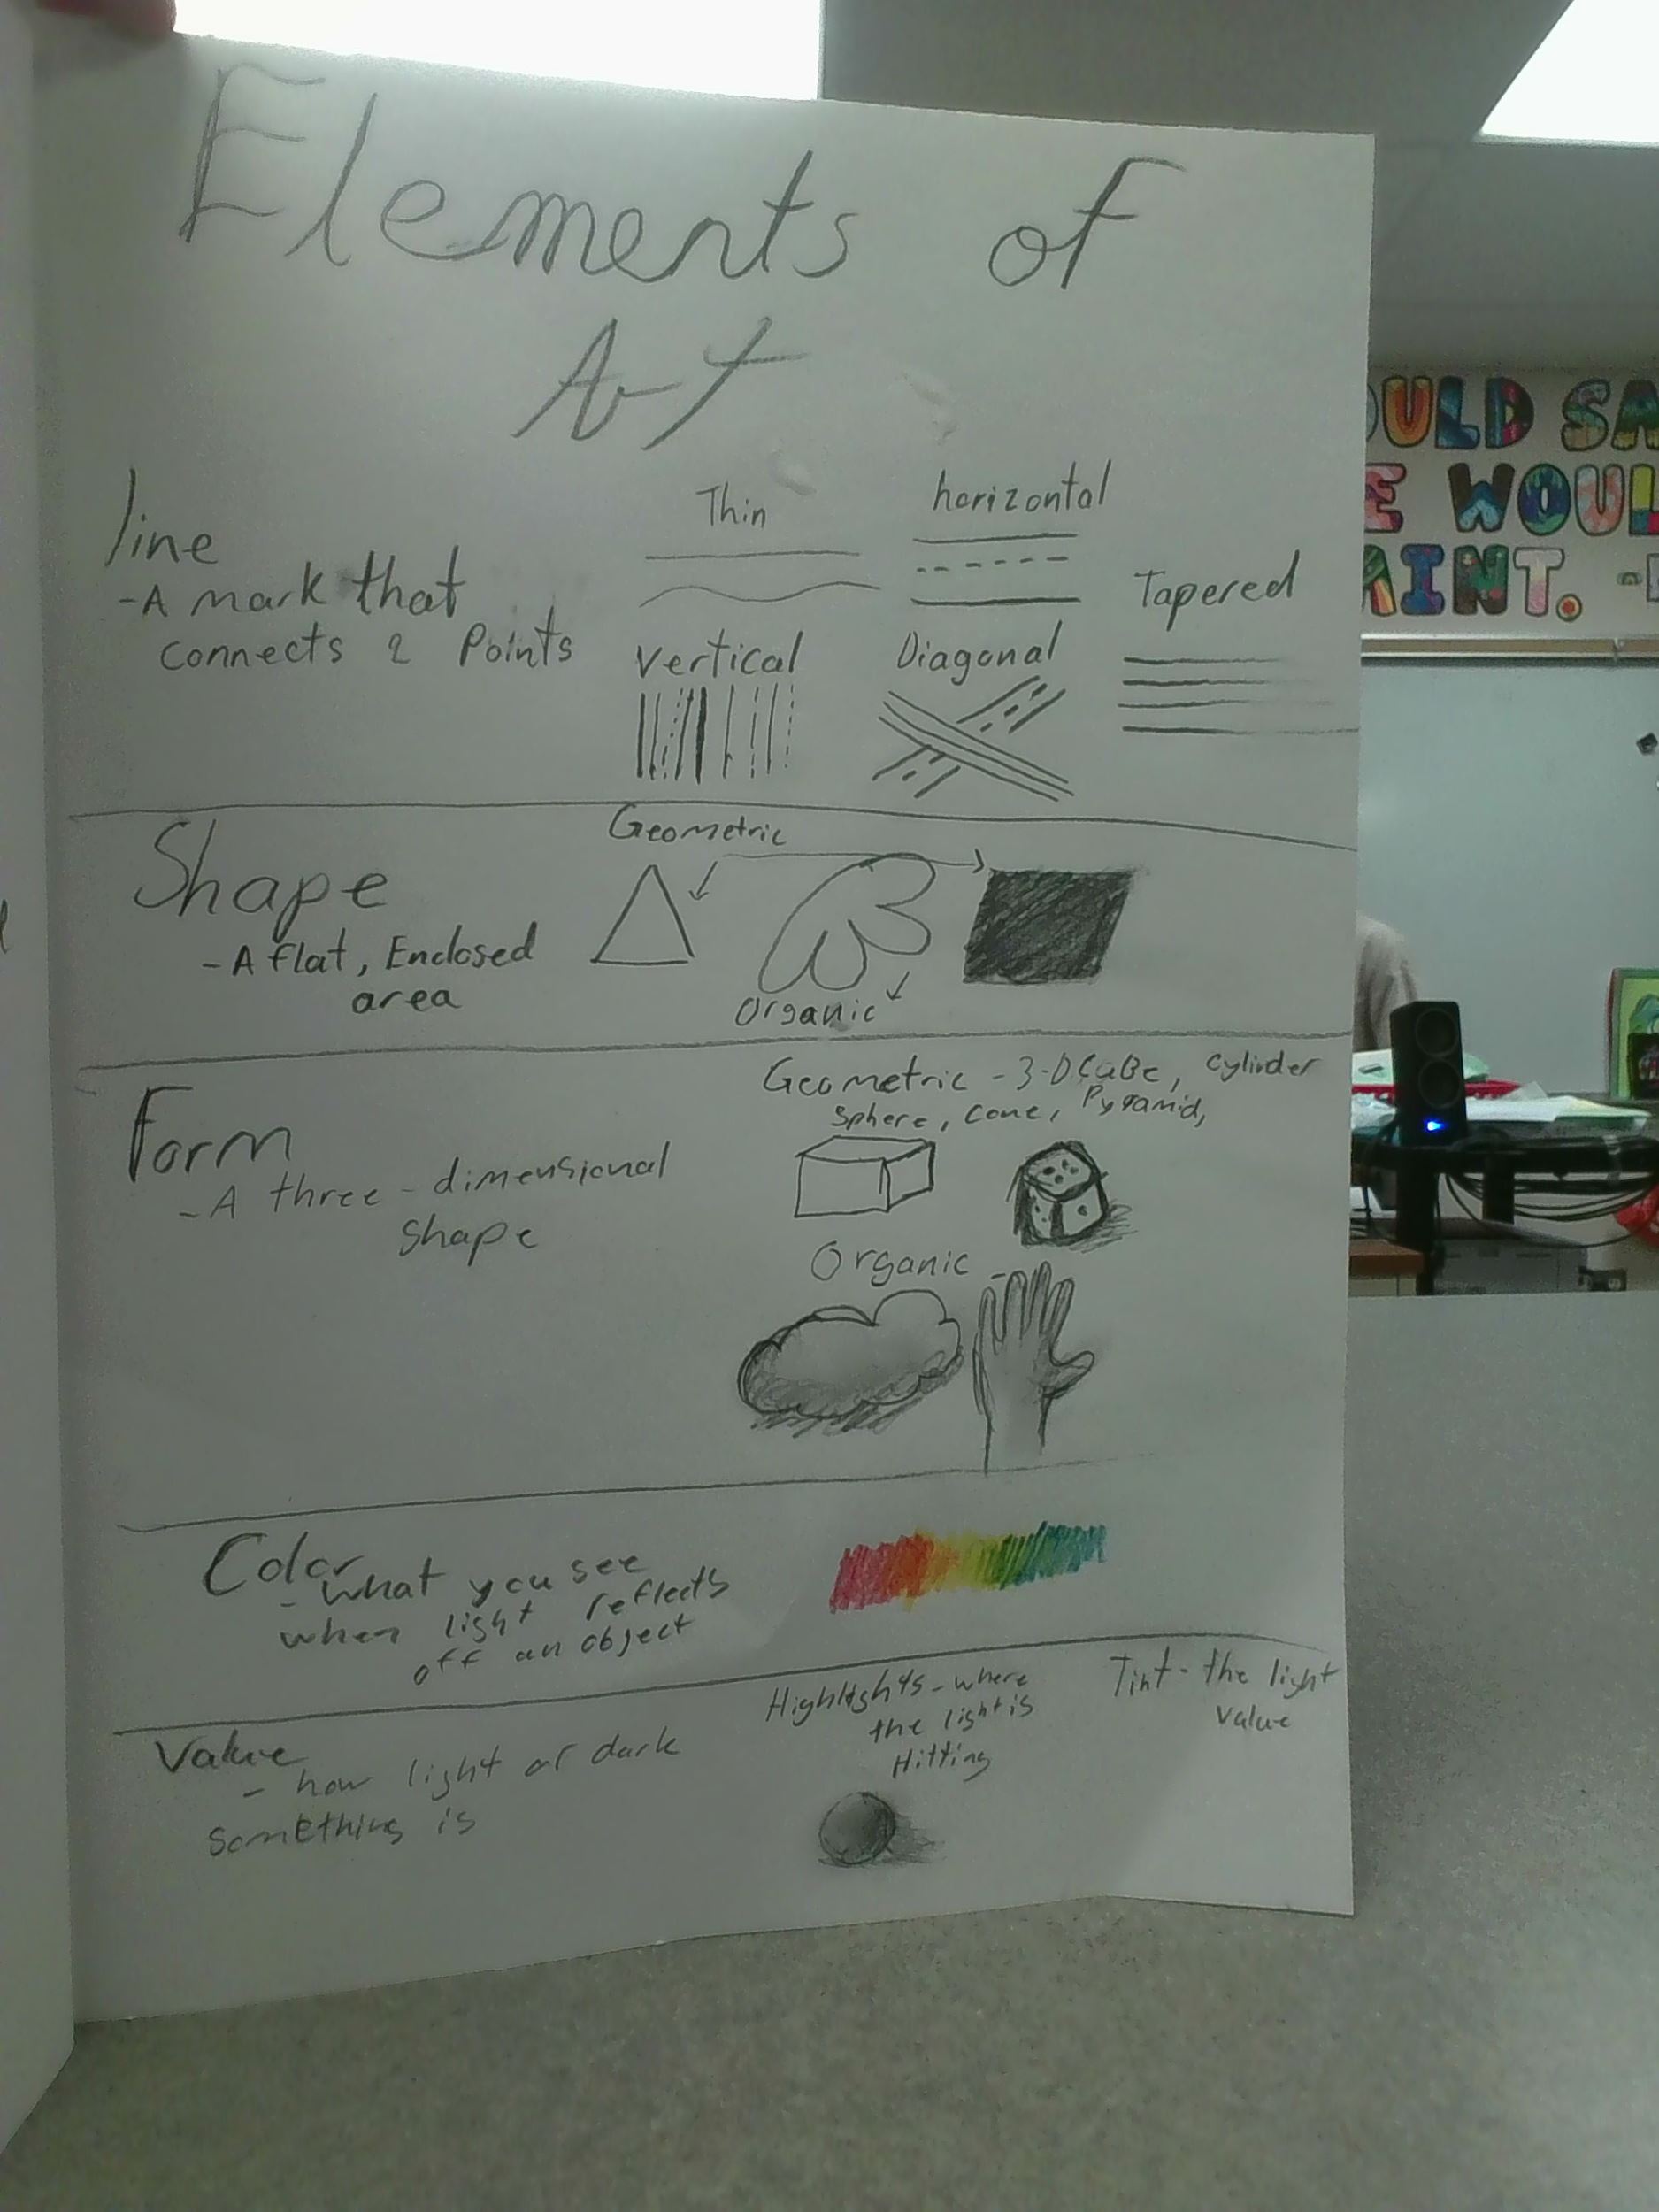 Elements of
Art
line
-A mark that
connects 2 Points
Thin
horizontal
Tapered
Vertical
Diagonal
Shape
-A flat, Enclosed
area
Geometric
Organic
Form
-A three-dimensional
shape
Geometric -3-D CuBe, cylinder
Sphere, cone, Pyramid,
Organic -
Color
-what you see
when light reflects
off an object
Value
- how light or dark
something is
Highlights - where
the light is
Hitting
Tint - the light
value
OULD SA
E WOUL
AINT. -